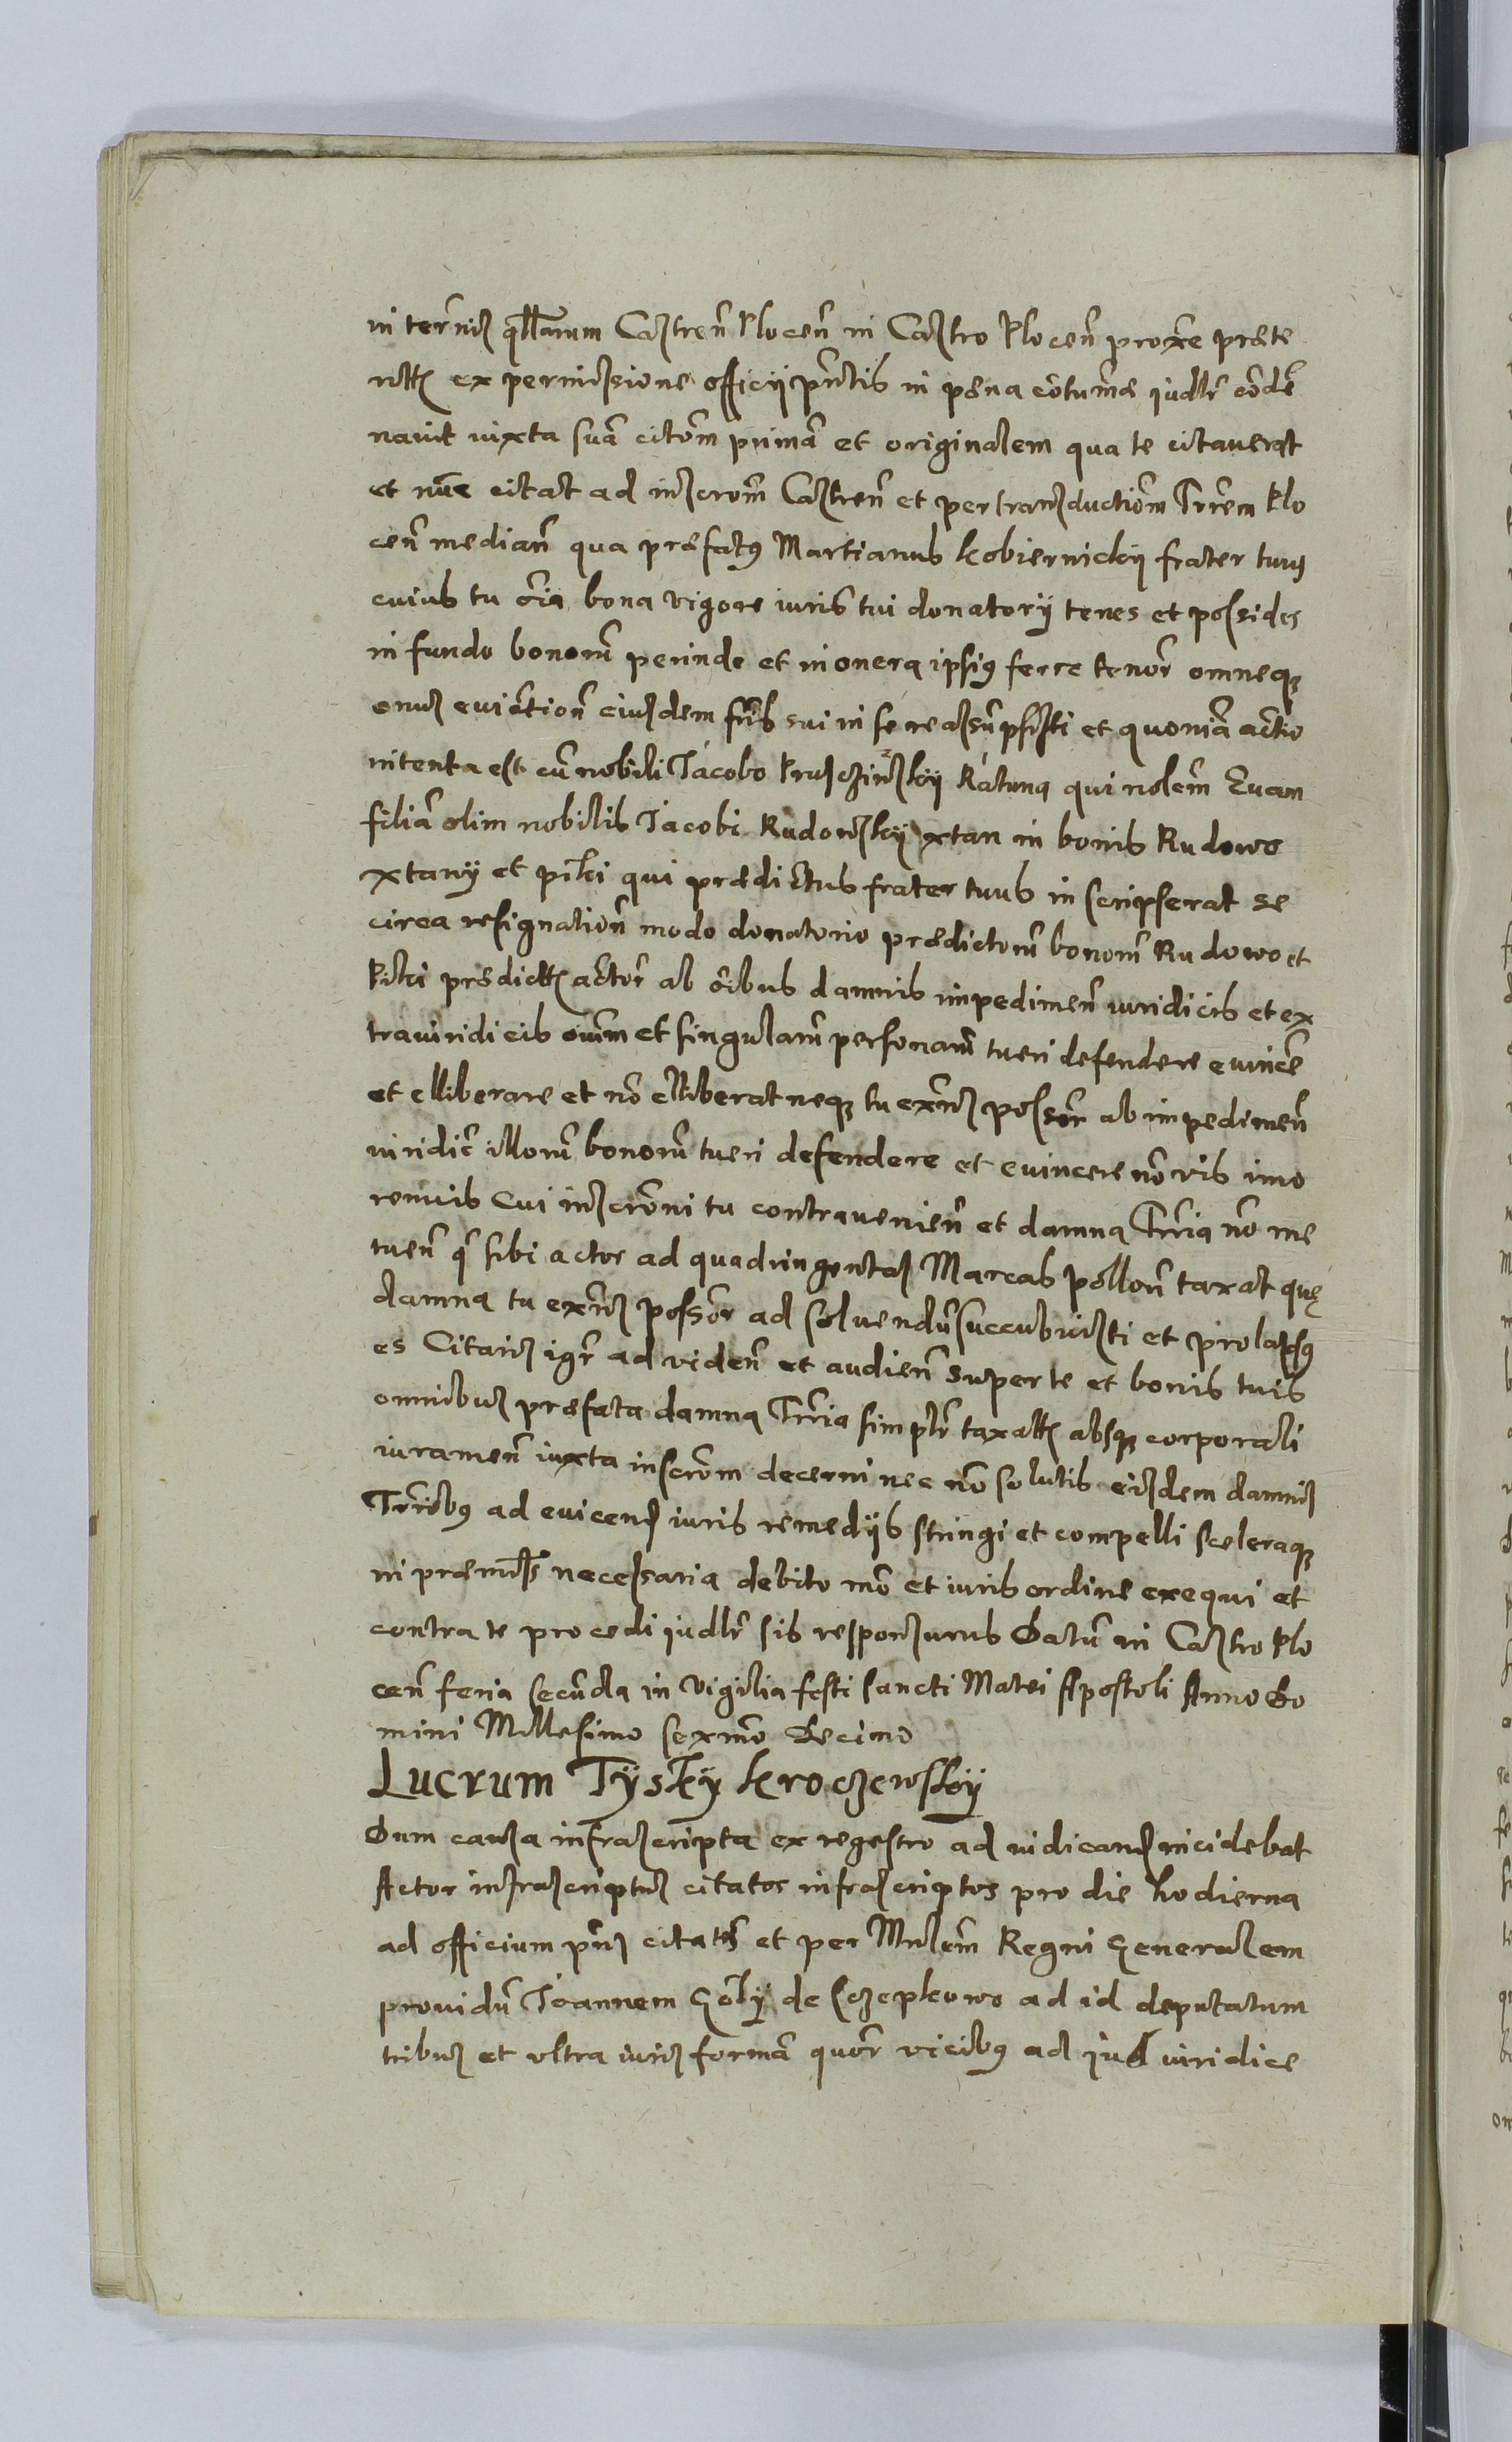 in terñis qllarum Castreñ Ploceñ in Castro Ploceñ proxe præte
ritts ex permissione officij pñtis in pæna cõtumæ iudlr cõdẽ
nauit iuxta suã citõm primã et originalem qua te citauerat
et nũc citat ad inscrom̃ Castreñ et per transductiõm Trrem Plo
ceñ mediañ qua præfatq Martianus Kobiernickij frater tuq
cuius tu oĩa bona vigore iuris tui donatorij tenes et possides
in fundo bonorũ perinde et in onera ipsiq ferre tenor̃ omneqz
onus euictioñ eiusdem frĩs sui in se reassũpsisti et quoniã actio
intenta est cũ nobili Jacobo Pruschinskij Ratuna qui nolem̃ Euam
filiã olim nobilis Jacobi Rudowskij xtan in bonis Rudowo
xtanij et piltki qui prædictus frater tuus inscripserat se
circa resignatioñ modo donatorio prædictorũ bonorũ Rudowo et
Pilki prædictts actor̃ ab oĩbus damnis impedimeñ iuridicis et ex
trauiridicis oium̃ et singularũ personarũ tueri defendere euince
et elliberare et nõ elliberat neqz tu exñs possor ab impedimeñ
iuridic̃ illorũ bonorũ tueri defendere et euincere nõ vis imo
renuis Cui inscroni tu contraueniẽn et damna Trria nõ me
tueñ q̃ sibi actor ad quadringentas Marcas polloñ taxat quę
damna tu exñs possor ad soluendũ succubuisti et prolapsq
es Citaris igr̃ ad videñ et audieñ super te et bonis tuis
omnibus præfata damna Trria simplr̃ taxatts absqz corporali
iurameñ iuxta inscrom̃ decerni nec nõ solutis eisdem damnis
Trribq ad euicend iuris remedijs stringi et compelli sceleraqz
in præmiss̃ necessaria debito mõ et iuris ordine exequi et
contra te procedi iudlr̃ sis responsurus Datũ in Castro Plo
ceñ feria secũda in vigilia festi sancti Matei Apostoli Anno Do
mini Millesimo sexmo Decimo
Lucrum Tÿskÿ Kroczewskij
Dum causa infrascripta ex regestro ad iudicand incidebat
Actor infrascriptus citatos infrascriptos pro die hodierna
ad officium pñs citatos et per Mnlem̃ Regni Generalem
prouidũ Joannem Golÿ de Sczepkowo ad id deputatum
tribus et vltra iuris formã quor̃ vicibq ad iud iuridice